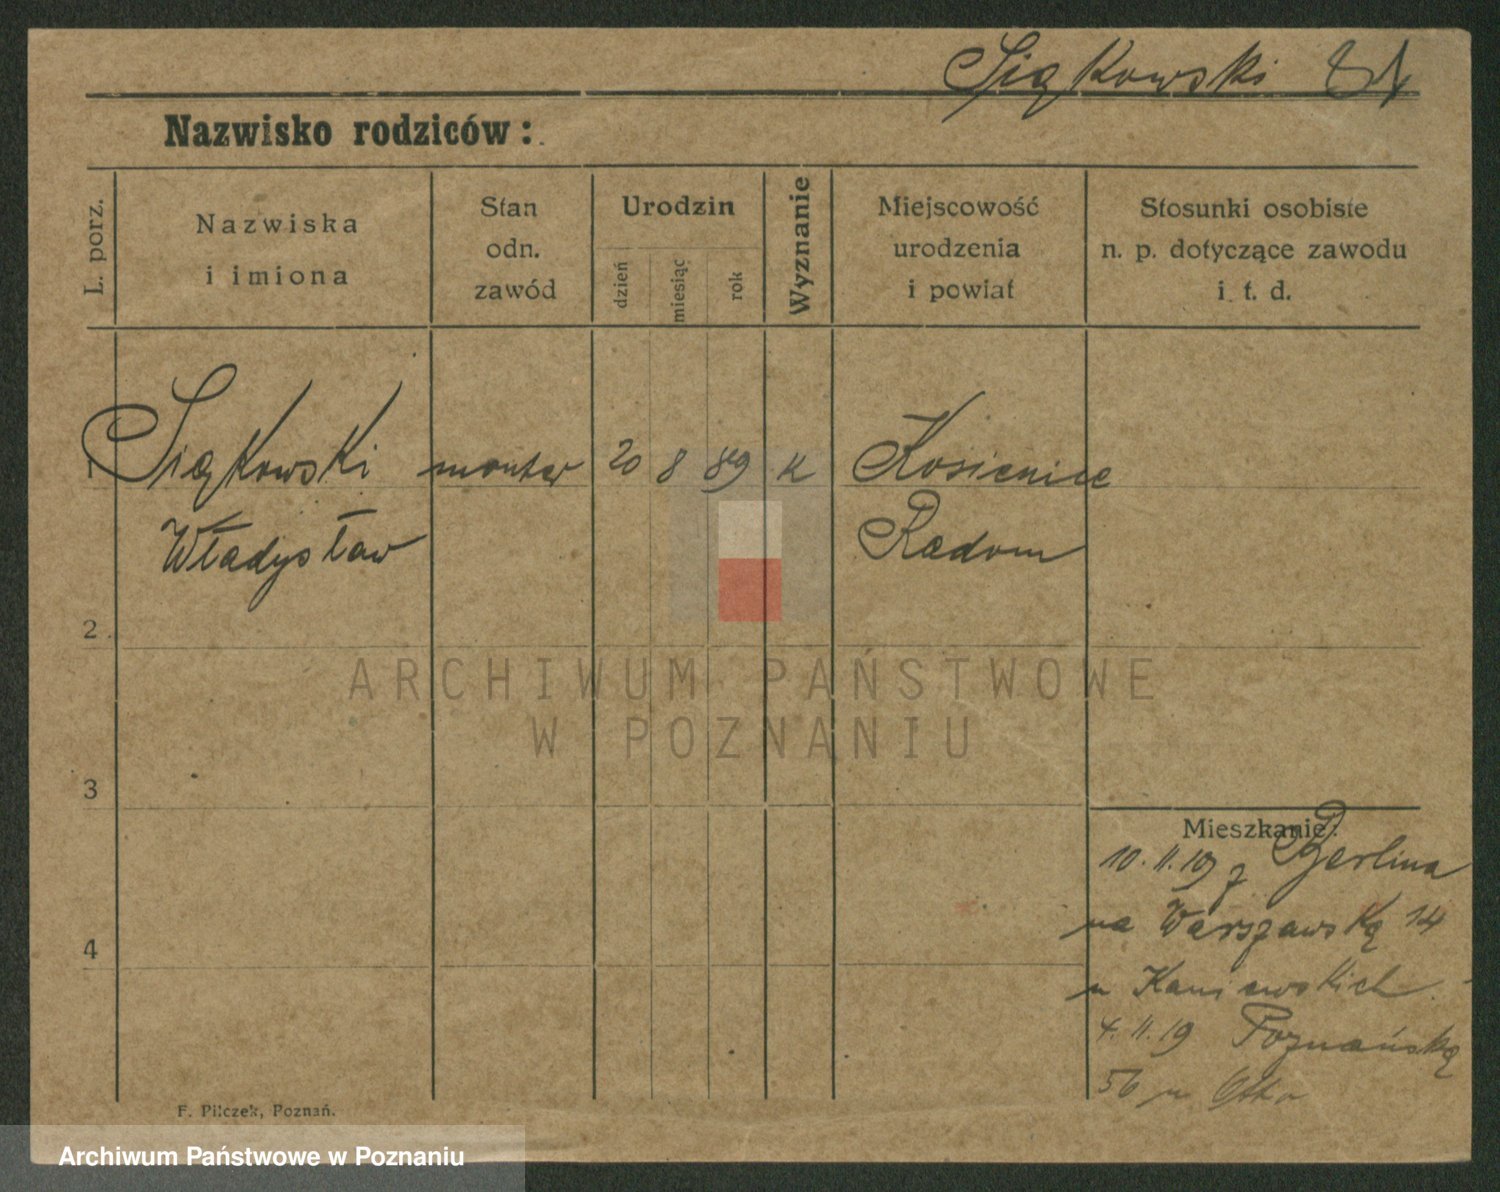 Siąkowski
Nazwisko rodziców:
L. porz.
Nazwiska
i imiona
Stan
odn.
zawód
Urodzin
dzień
miesiąc
rok
Wyznanie
Miejscowość
urodzenia
i powiat
Stosunki osobiste
n. p. dotyczące zawodu
i. t. d.
1 Siąkowski monter 20 8 89 K Kosienice
Władysław Radom
2
3
4
Mieszkanie:
10.11.19 z Berlina
na Warszawską 14
u Kaniewskich.
4.11.19 Poznańską
56 u Otto
F. Pilczek, Poznań.
ARCHIWUM PAŃSTWOWE
W POZNANIU
Archiwum Państwowe w Poznaniu